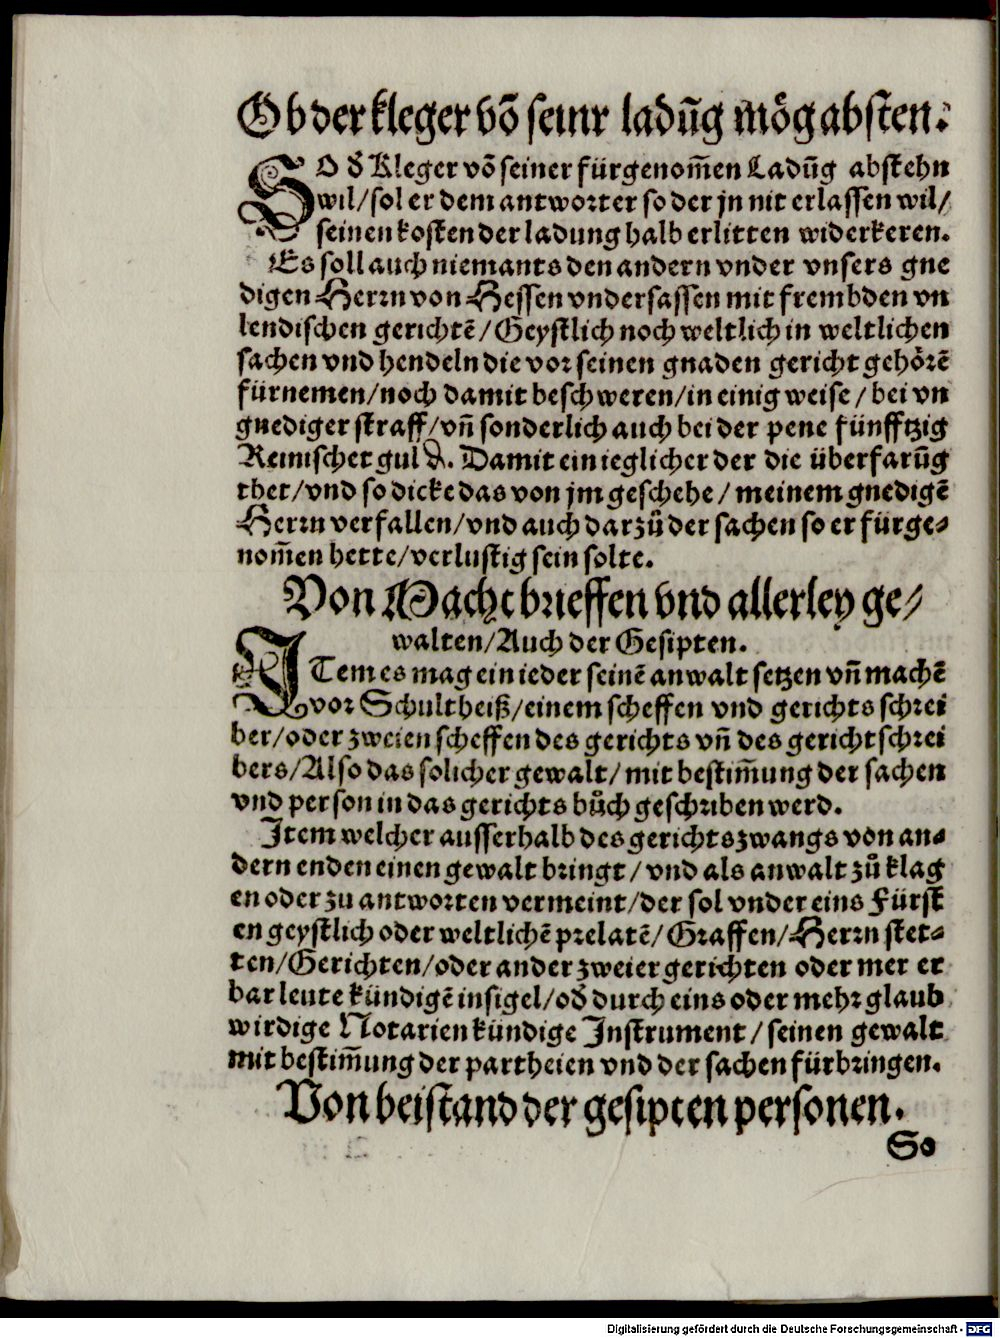 Ob der kleger võ seinr ladũg mög absten.
SO ð Kleger võ seiner fürgenom̃en Ladũg abstehn
wil/ sol er dem antworter so der jn nit erlassen wil/
seinen kosten der ladung halb erlitten widerkeren.
Es soll auch niemants den andern vnder vnsers gne
digen Herrn von Hessen vndersassen mit frembden vn
lendischen gerichtẽ/ Geystlich noch weltlich in weltlichen
sachen vnd hendeln die vor seinen gnaden gericht gehörẽ
fürnemen/ noch damit beschweren/ in einig weise/ bei vn
gnediger straff/ vñ sonderlich auch bei der pene fünfftzig
Reinischer guld. Damit ein ieglicher der die überfarũg
thet/ vnd so dicke das von jm geschehe/ meinem gnedigẽ
Herrn verfallen/ vnd auch darzů der sachen so er fürge-
nom̃en hette/ verlustig sein solte.
Von Macht brieffen vnd allerley ge-
walten/ Auch der Gesipten.
ITem es mag ein ieder seinẽ anwalt setzen vñ machẽ
vor Schultheiß/ einem scheffen vnd gerichts schrei
ber/ oder zweien scheffen des gerichts vñ des gerichtschrei
bers/ Also das solicher gewalt/ mit bestim̃ung der sachen
vnd person in das gerichts bůch geschriben werd.
Item welcher ausserhalb des gerichtszwangs von an-
dern enden einen gewalt bringt/ vnd als anwalt zů klag
en oder zu antworten vermeint/ der sol vnder eins Fürst
en geystlich oder weltlichẽ prelatẽ/ Graffen/ Herrn stet-
ten/ Gerichten/ oder ander zweier gerichten oder mer er
bar leute kündigẽ insigel/ oð durch eins oder mehr glaub
wirdige Notarien kündige Instrument/ seinen gewalt
mit bestim̃ung der partheien vnd der sachen fürbringen.
Von beistand der gesipten personen.
So
Digitalisierung gefördert durch die Deutsche Forschungsgemeinschaft - DFG